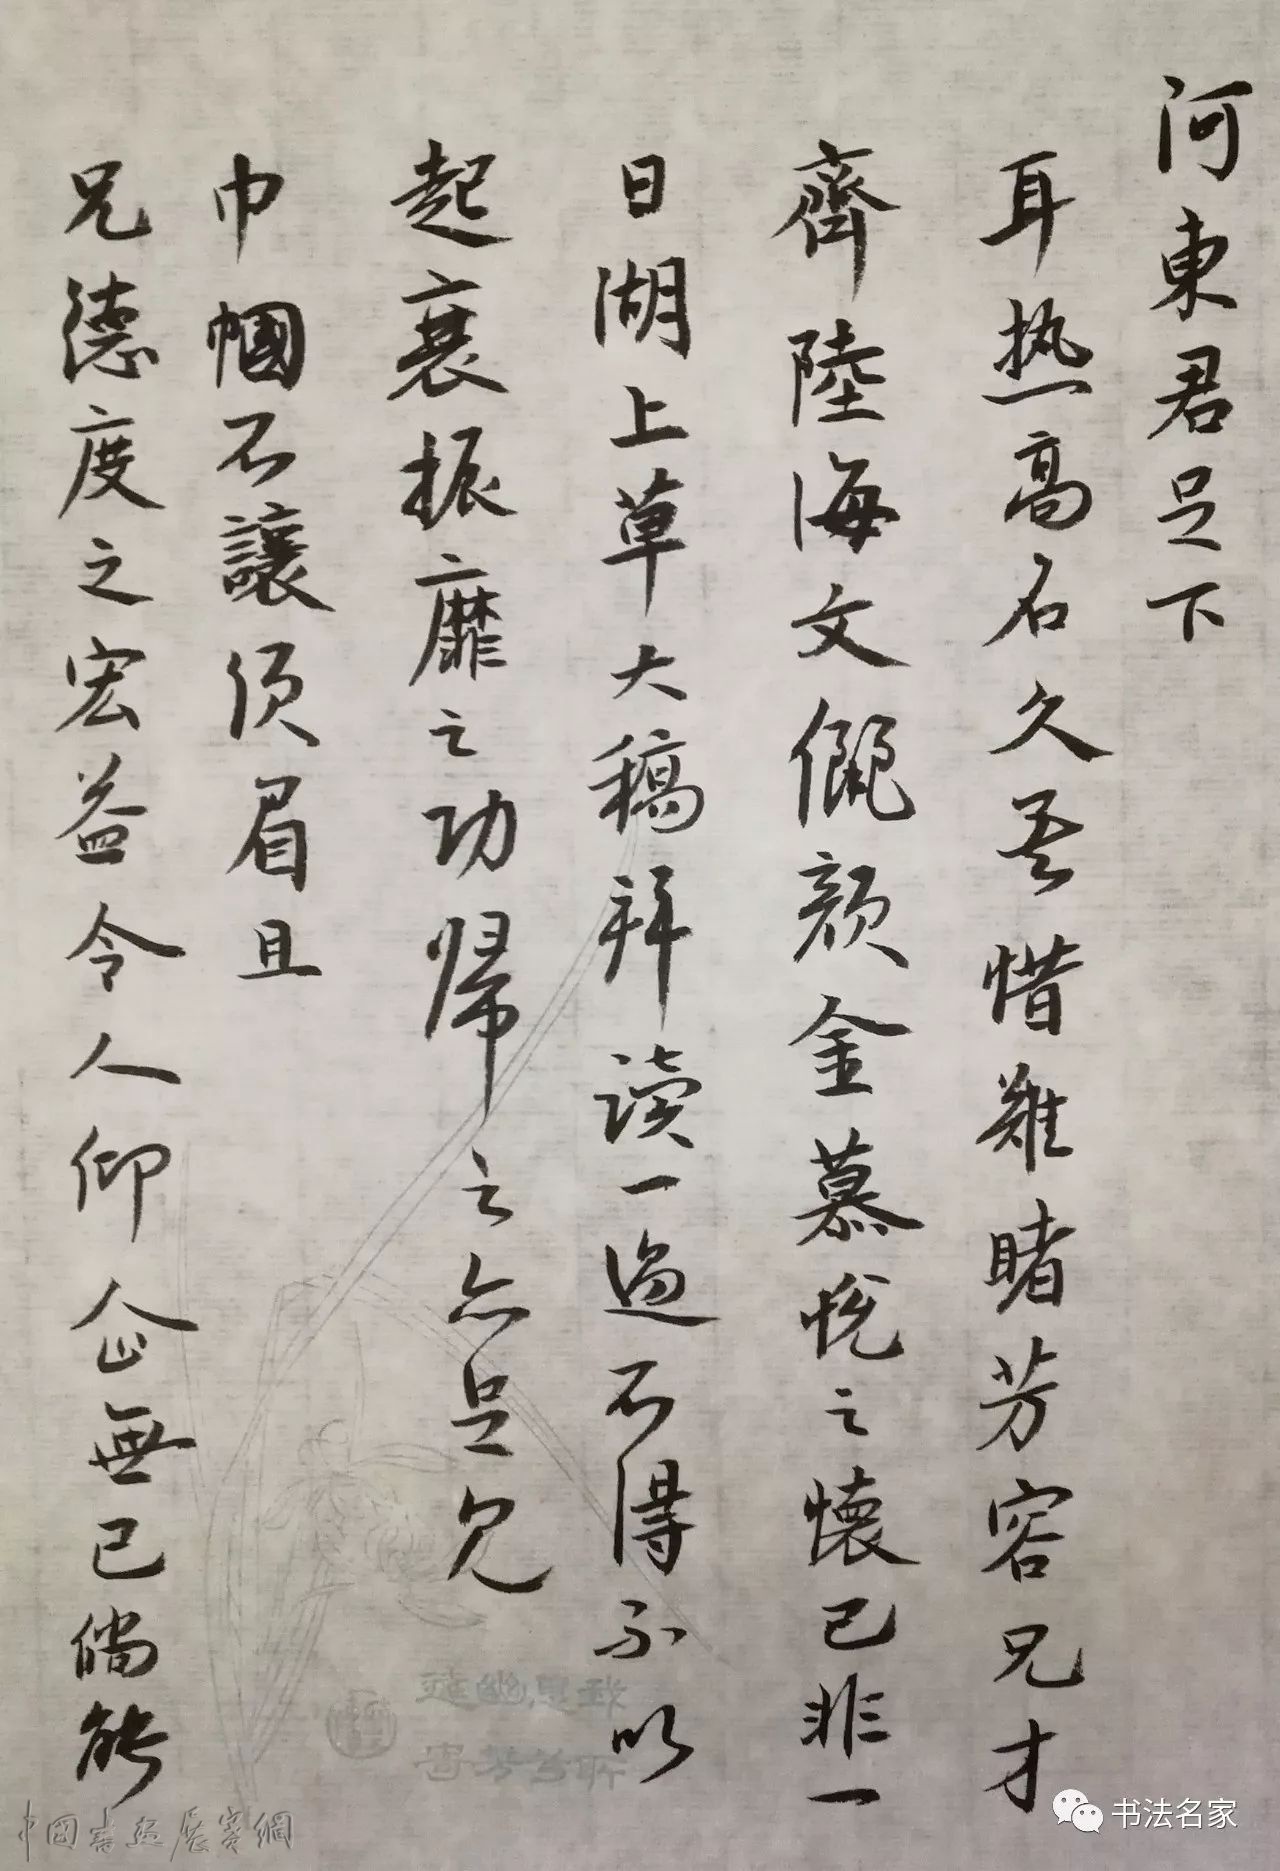 河東君足下
耳热高名久矣惜難睹芳容兄才
齊陸海文儷顔金慕悦之懷已非一
日湖上草大稿拜读一過不得不以
起衰振靡之功帰之亦足见
巾帼不讓须眉且
兄德度之宏益令人仰企無已倘能
书法名家